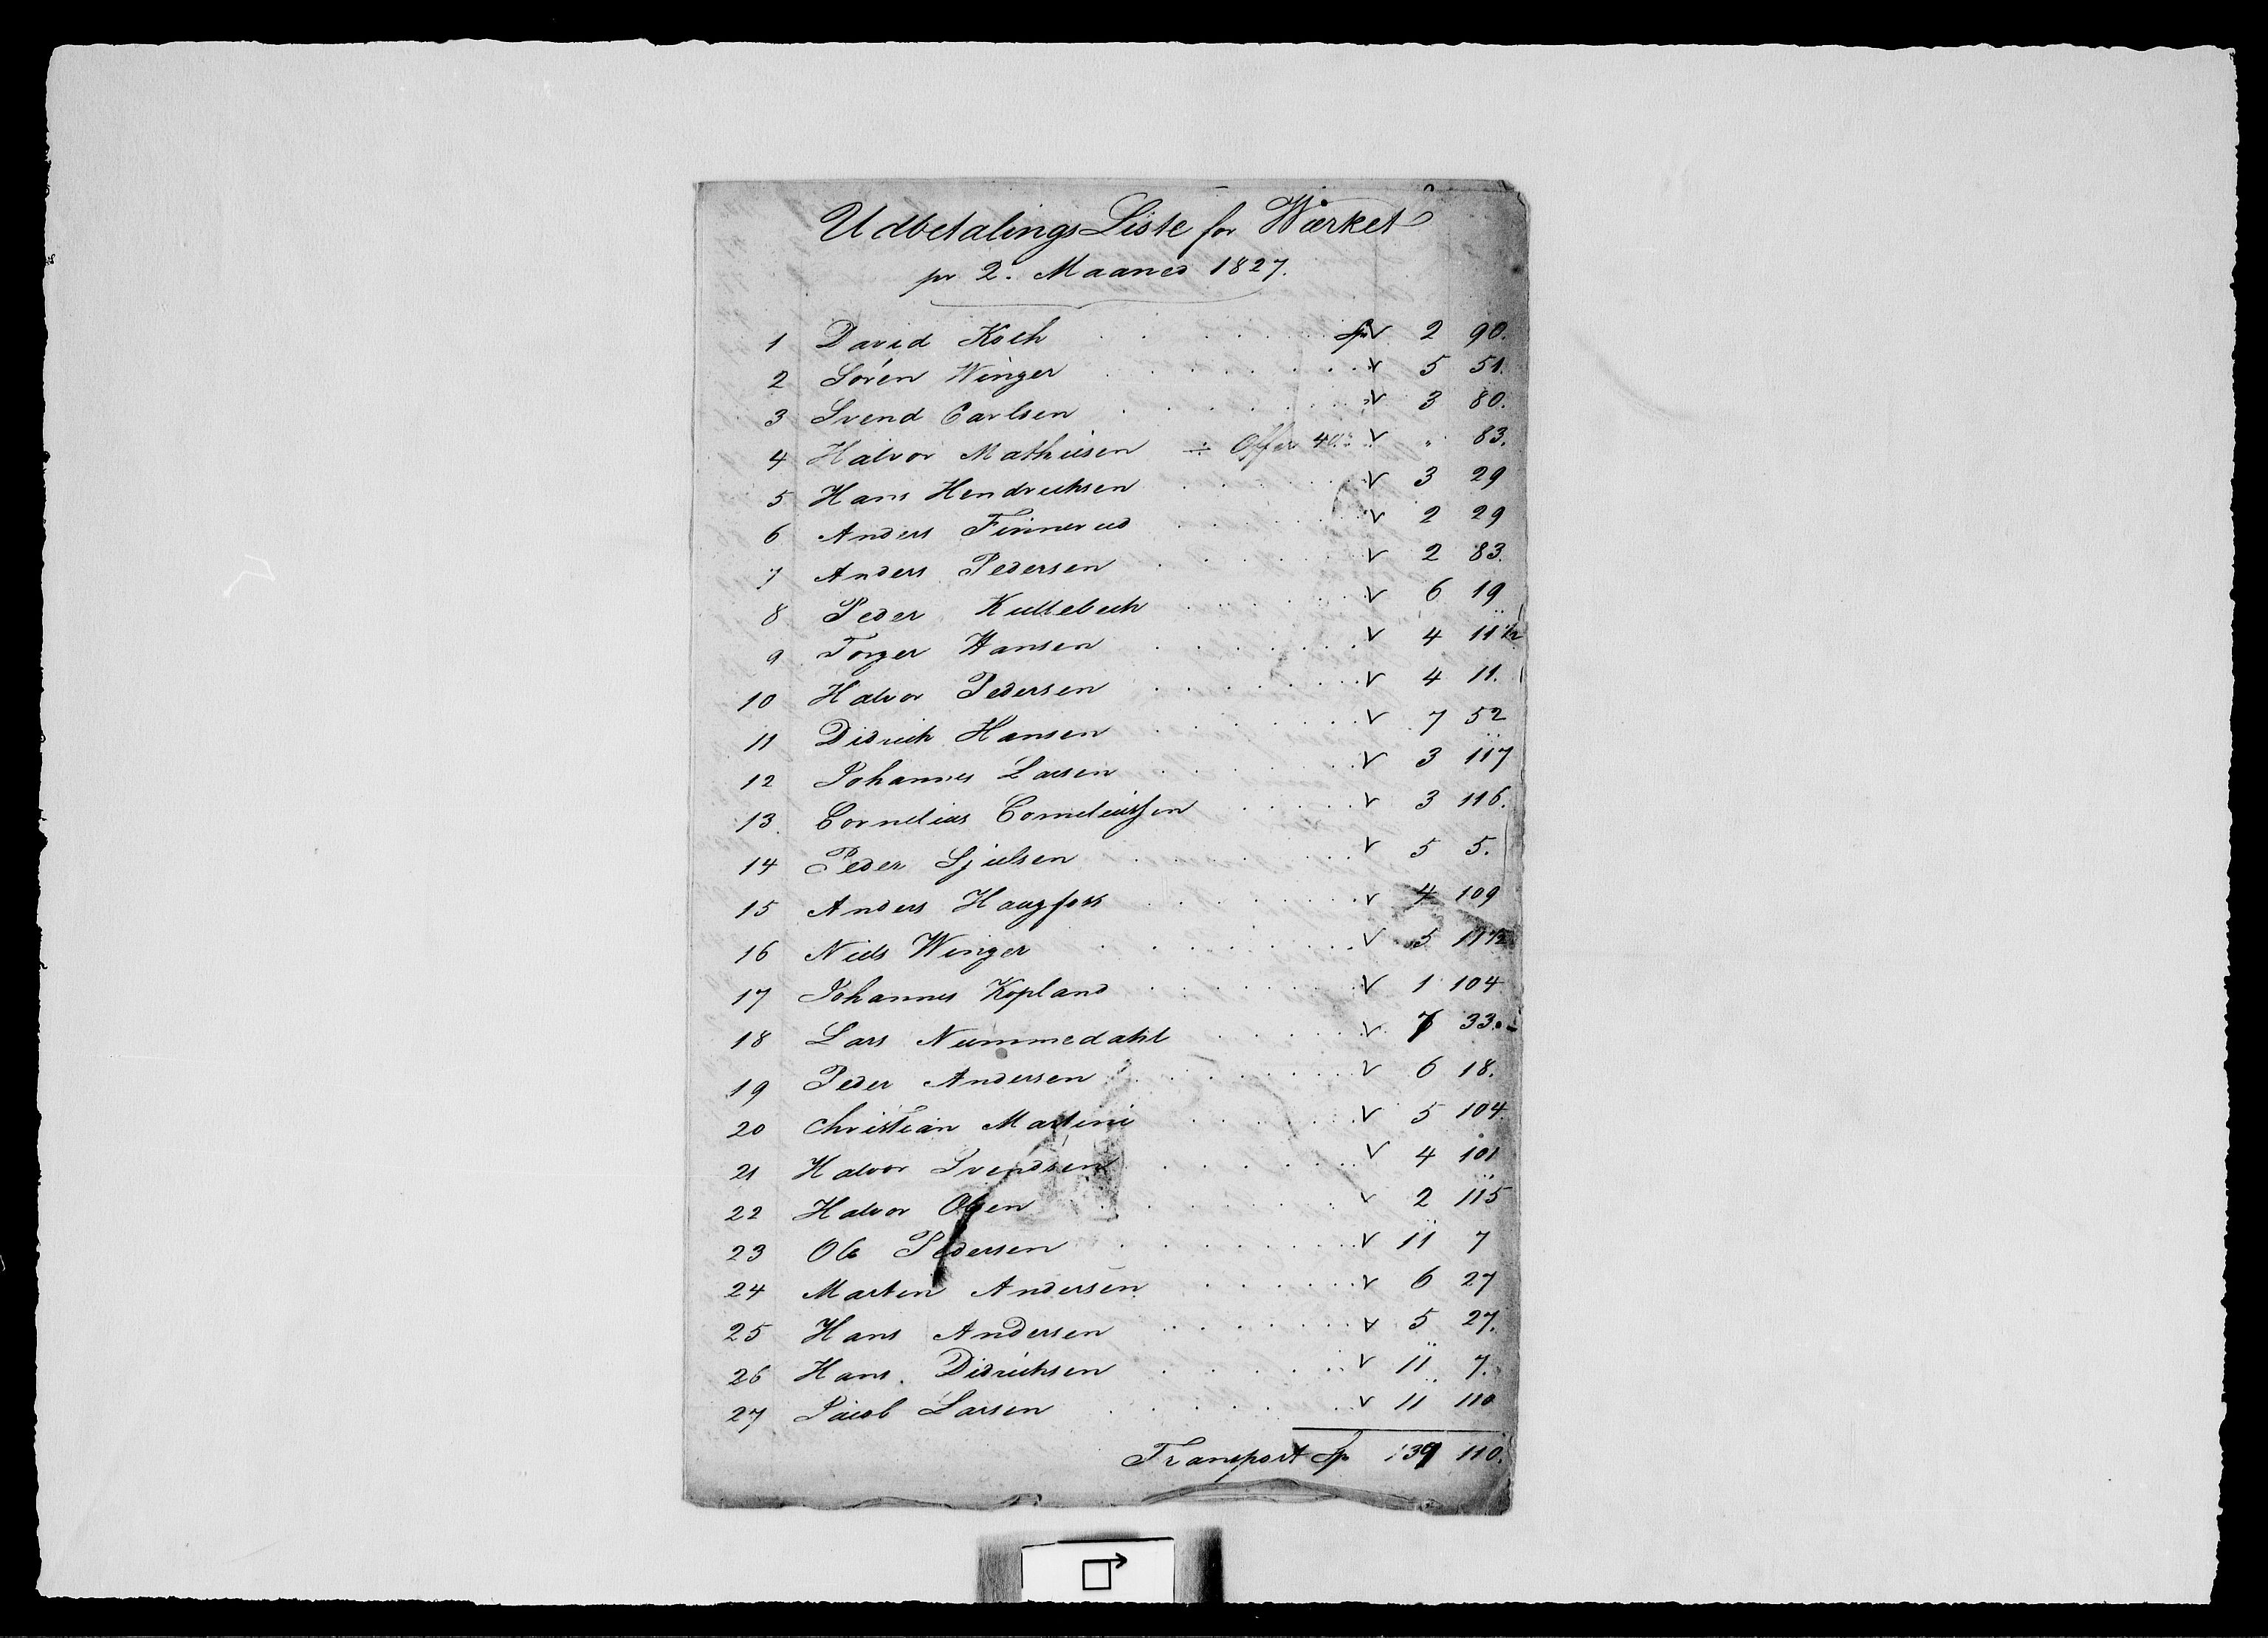 Udbetalings Liste for Wærket
pr 2. Maaned 1827.
1 David Koch . . . . . . Sp V 2 90.
2 Sören Winger . . . . . . V 5 51.
3 Svend Carlsen . . . . . . V 3 80.
4 Halvor Mathisen ÷ Offer 40 V " 83.
5 Hans Hendrichsen . . . . . V 3 29
6 Anders Finnerud . . . . . V 2 29
7 Anders Pedersen . . . . . V 2 83.
8 Peder Kultebech . . . . . V 6 19
9 Torger Hansen . . . . . . V 4 11½
10 Halvor Pedersen . . . . . V 4 11.
11 Didrich Hansen . . . . . V 7 52
12 Johannes Larsen . . . . . V 3 117
13 Cornelius Corneliussen . . . . V 3 116.
14 Peder Gjulsen . . . . . . V 5 5.
15 Anders Haugfoss . . . . . V 4 109
16 Niels Winger . . . . . . V 5 11½
17 Johannes Kopland . . . . . V 1 104
18 Lars Nummedahl . . . . V 7 33.
19 Peder Andersen . . . . . V 6 18.
20 Christian Martini . . . . . V 5 104
21 Halvor Svendsen . . . . . V 4 101
22 Halvor Olsen . . . . . . V 2 115
23 Ole Pedersen . . . . . . V 11 7
24 Marten Andersen . . . . . V 6 27
25 Hans Andersen . . . . . V 5 27.
26 Hans Didrichsen . . . . . V 11 7.
27 Jacob Larsen . . . . . . V 11 110
Transport Sp 139 110.